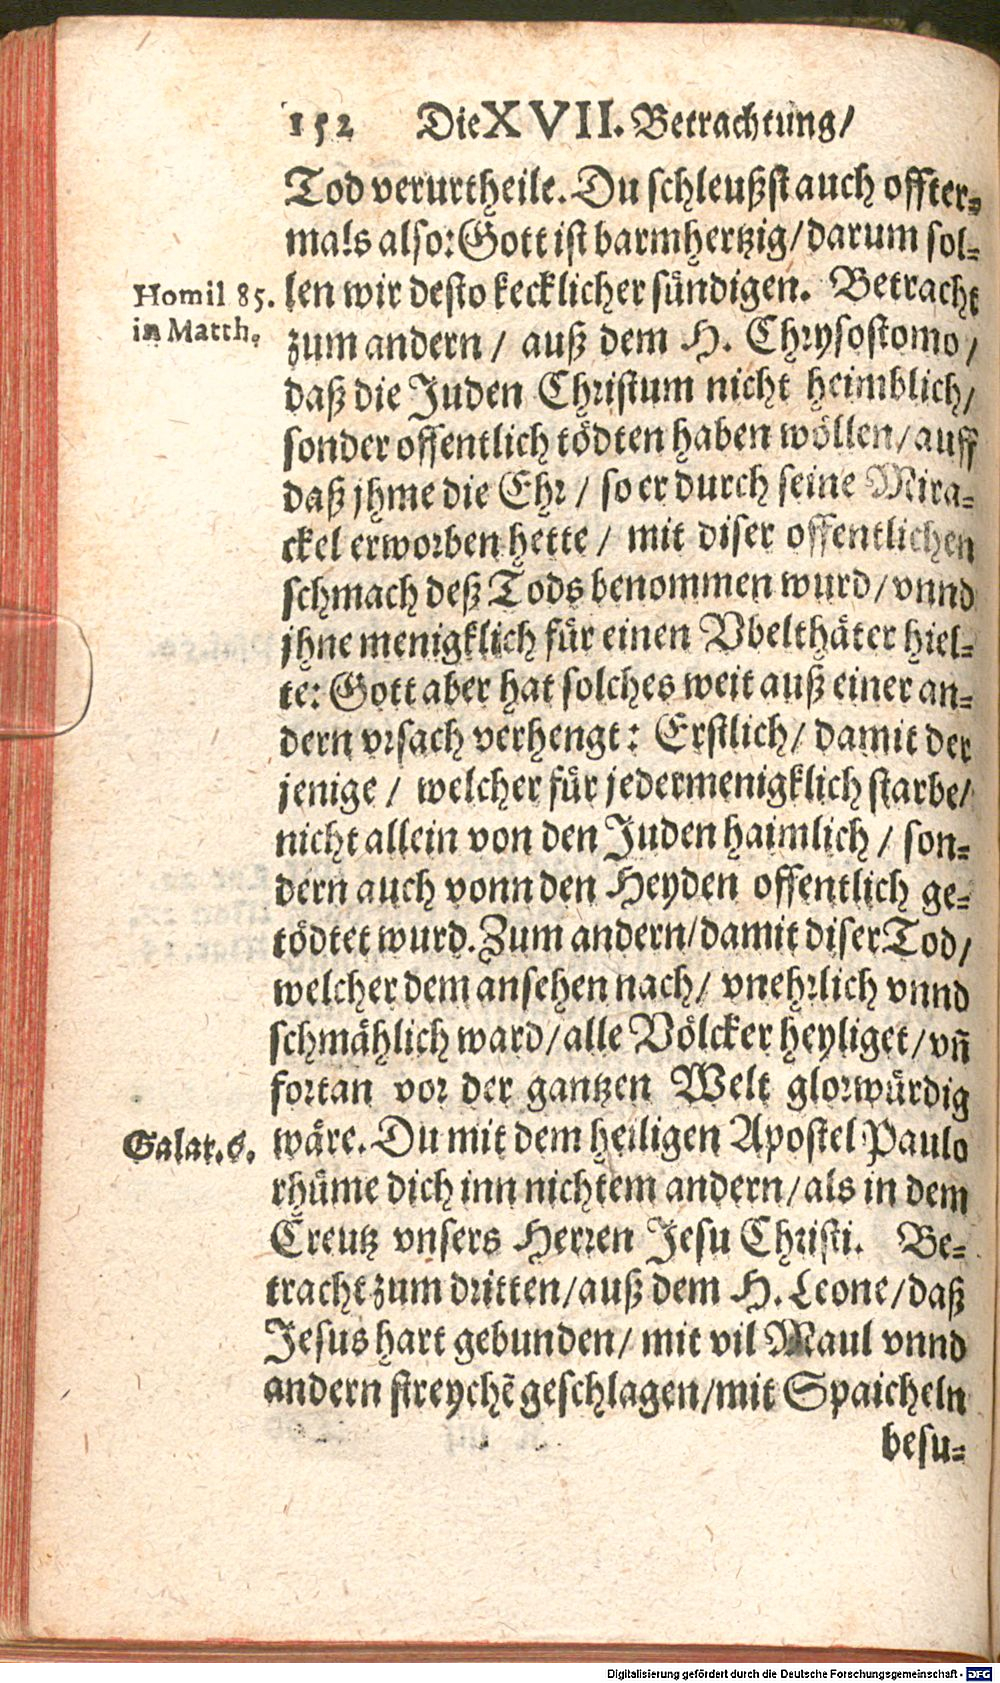 152 Die XVII. Betrachtung/
Tod verurtheile. Du schleußst auch offter-
mals also: Gott ist barmhertzig/ darum sol-
Homil 85. in Matth.
len wir desto kecklicher sündigen. Betracht
zum andern / auß dem H. Chrysostomo /
daß die Juden Christum nicht heimblich/
sonder offentlich tödten haben wöllen/ auff
daß jhme die Ehr / so er durch seine Mira-
ckel erworben hette / mit diser offentlichen
schmach deß Tods benommen wurd/ vnnd
jhne menigklich für einen Vbelthäter hiel-
te: Gott aber hat solches weit auß einer an-
dern vrsach verhengt: Erstlich/ damit der
jenige / welcher für jedermenigklich starbe/
nicht allein von den Juden haimlich / son-
dern auch vonn den Heyden offentlich ge-
tödtet wurd. Zum andern/ damit diser Tod/
welcher dem ansehen nach/ vnehrlich vnnd
schmählich ward/ alle Völcker heyliget/ vñ
fortan vor der gantzen Welt glorwürdig
Galat. 6.
wäre. Du mit dem heiligen Apostel Paulo
rhüme dich inn nichtem andern/ als in dem
Creutz vnsers Herren Jesu Christi. Be-
tracht zum dritten/ auß dem H. Leone/ daß
Jesus hart gebunden/ mit vil Maul vnnd
andern streychẽ geschlagen/ mit Spaicheln
besu-
Digitalisierung gefördert durch die Deutsche Forschungsgemeinschaft - DFG